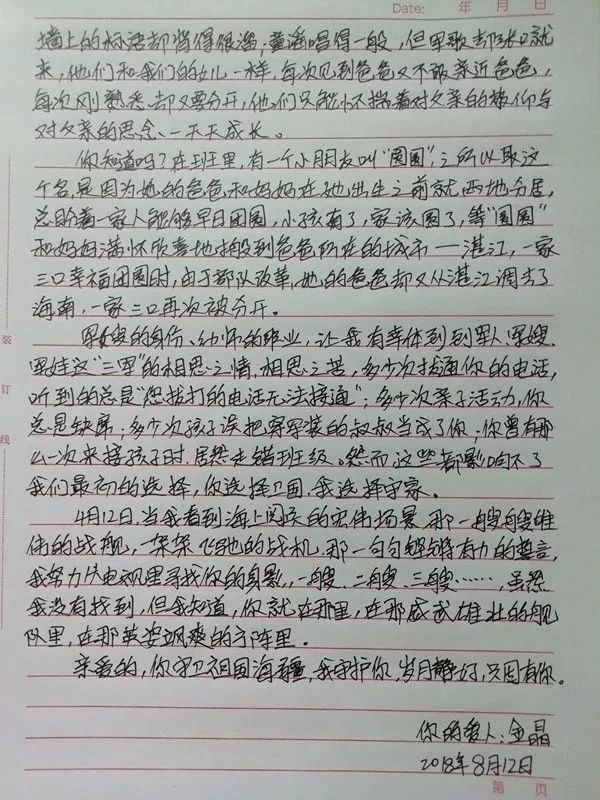 Date: 年 月 日
墙上的标语却背得很溜；童谣唱得一般，但军歌却张口就
来，他们和我们的女儿一样，每次见到爸爸又不敢亲近爸爸，
每次刚熟悉却又要分开，他们只能怀揣着对父亲的敬仰与
对父亲的思念，一天天成长。
你知道吗？在班里，有一个小朋友叫“圆圆”，之所以取这
个名，是因为她的爸爸和妈妈在她出生之前就两地分居，
总盼着一家人能够早日团圆，小孩有了，家该圆了，等“圆圆”
和妈妈满怀欣喜地搬到爸爸所在的城市——湛江，一家
三口幸福团圆时，由于部队改革，她的爸爸却又从湛江调去了
海南，一家三口再次被分开。
军嫂的身份、幼师的职业，让我有幸体到到军人、军嫂、
军娃这“三军”的相思之情、相思之苦，多少次拨通你的电话，
听到的总是“您拨打的电话无法接通”；多少次亲子活动，你
总是缺席；多少次孩子误把穿军装的叔叔当成了你；你曾有那
么一次来接孩子时，居然走错班级。然而这些都影响不了
我们最初的选择，你选择卫国，我选择守家。
4月12日，当我看到海上阅兵的宏伟场景，那一艘艘雄
伟的战舰，一架架飞驰的战机，那一句句铿锵有力的誓言，
我努力从电视里寻找你的身影，一艘、二艘、三艘……，虽然
我没有找到，但我知道，你就在那里，在那威武雄壮的舰
队里，在那英姿飒爽的方阵里。
亲爱的，你守卫祖国海疆，我守护你，岁月静好，只因有你。
你的爱人：金晶
2018年8月12日
装
订
线
第 页